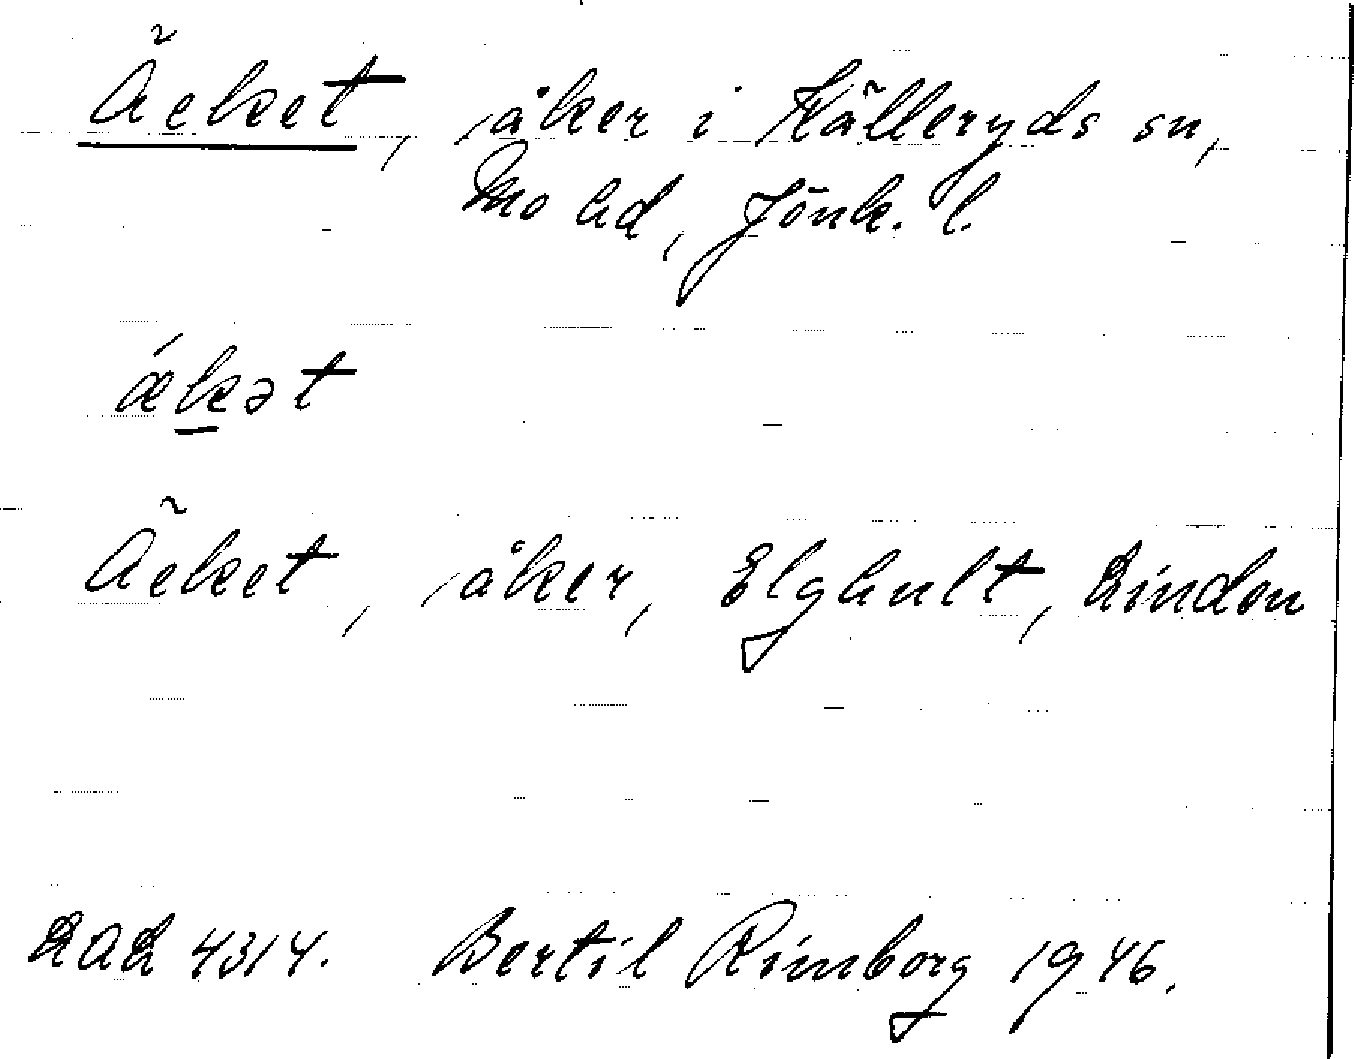 Äeket, åker i Källeryds sn,
Mo hd, Jönk. l.
ǽkət
Äeket, åker, Elghult, Lindon
LAL 4314. Bertil Rimborg 1946.